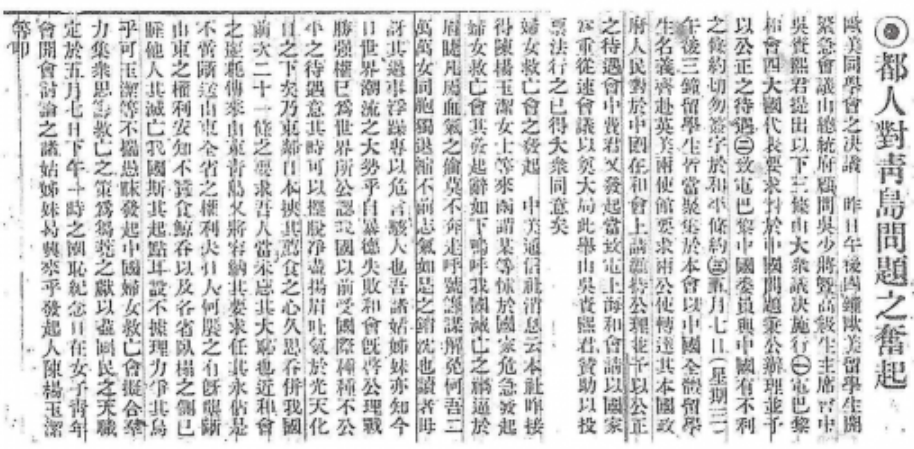 ◉都人對靑島問題之奮起
歐美同學會之決議　昨日午後四鐘歐美留學生開
緊急會議由總統府顧問吳少將毓高級生主席會中
吳資熙君提出以下三條由大衆議決施行㊀電巴黎
和會四大國代表要求對於中國問題秉公辦理並予
以公正之待遇㊁致電巴黎中國委員與中國有不利
之條約切勿簽字於和平條約㊂五月七日（星期三）
午後三鐘留學生皆當聚集於本會以中國全體留學
生名義齊赴英美兩使館要求兩公使轉達其本國政
府人民對於中國在和會上請維持公理並予以公正
之待遇會中費君又發起當致電上海和會請以國家
爲重從速會議以奠大局此舉由吳資熙君贊助以投
票法行之已得大衆同意矣
婦女救亡會之發起　中美通信社消息云本社昨接
得陳楊玉潔女士等來函謂某等怵於國家危急發起
婦女救亡會其發起辭如下嗚呼我國滅亡之禍逼於
眉睫凡屬血氣之倫莫不奔走呼號謀解免何吾二
萬萬女同胞獨退縮不前志氣如是之銷沈也讀者毋
訝其過事浮躁專以危言駭人也吾諸姊妹亦知今
日世界潮流之大勢乎自暴德失敗和會旣啓公理戰
勝強權已爲世界所公認我國以前受國際種種不公
平之待遇意其時可以擺脫淨盡揚眉吐氣於光天化
日之下矣乃東鄰日本挾其鷙食之心久思吞併我國
前次二十一條之要求吾人當未忘其大恥也近和會
之噩耗傳來由東靑島又將容納其要求任其永佔是
不啻斷送山東全省之權利夫日人何厭之有旣壟斷
山東之權利安知不蠶食鯨吞以及各省臥榻之側已
鼾他人其滅亡我國斯其起點耳設不據理力爭其烏
乎可玉潔等不揣愚昧發起中國婦女救亡會擬合羣
力集衆思籌救亡之策爲芻蕘之獻以盡國民之天職
定於五月七日下午一時之國恥紀念日在女子靑年
會開會討論之諸姑姊妹曷興來乎發起人陳楊玉潔
等叩